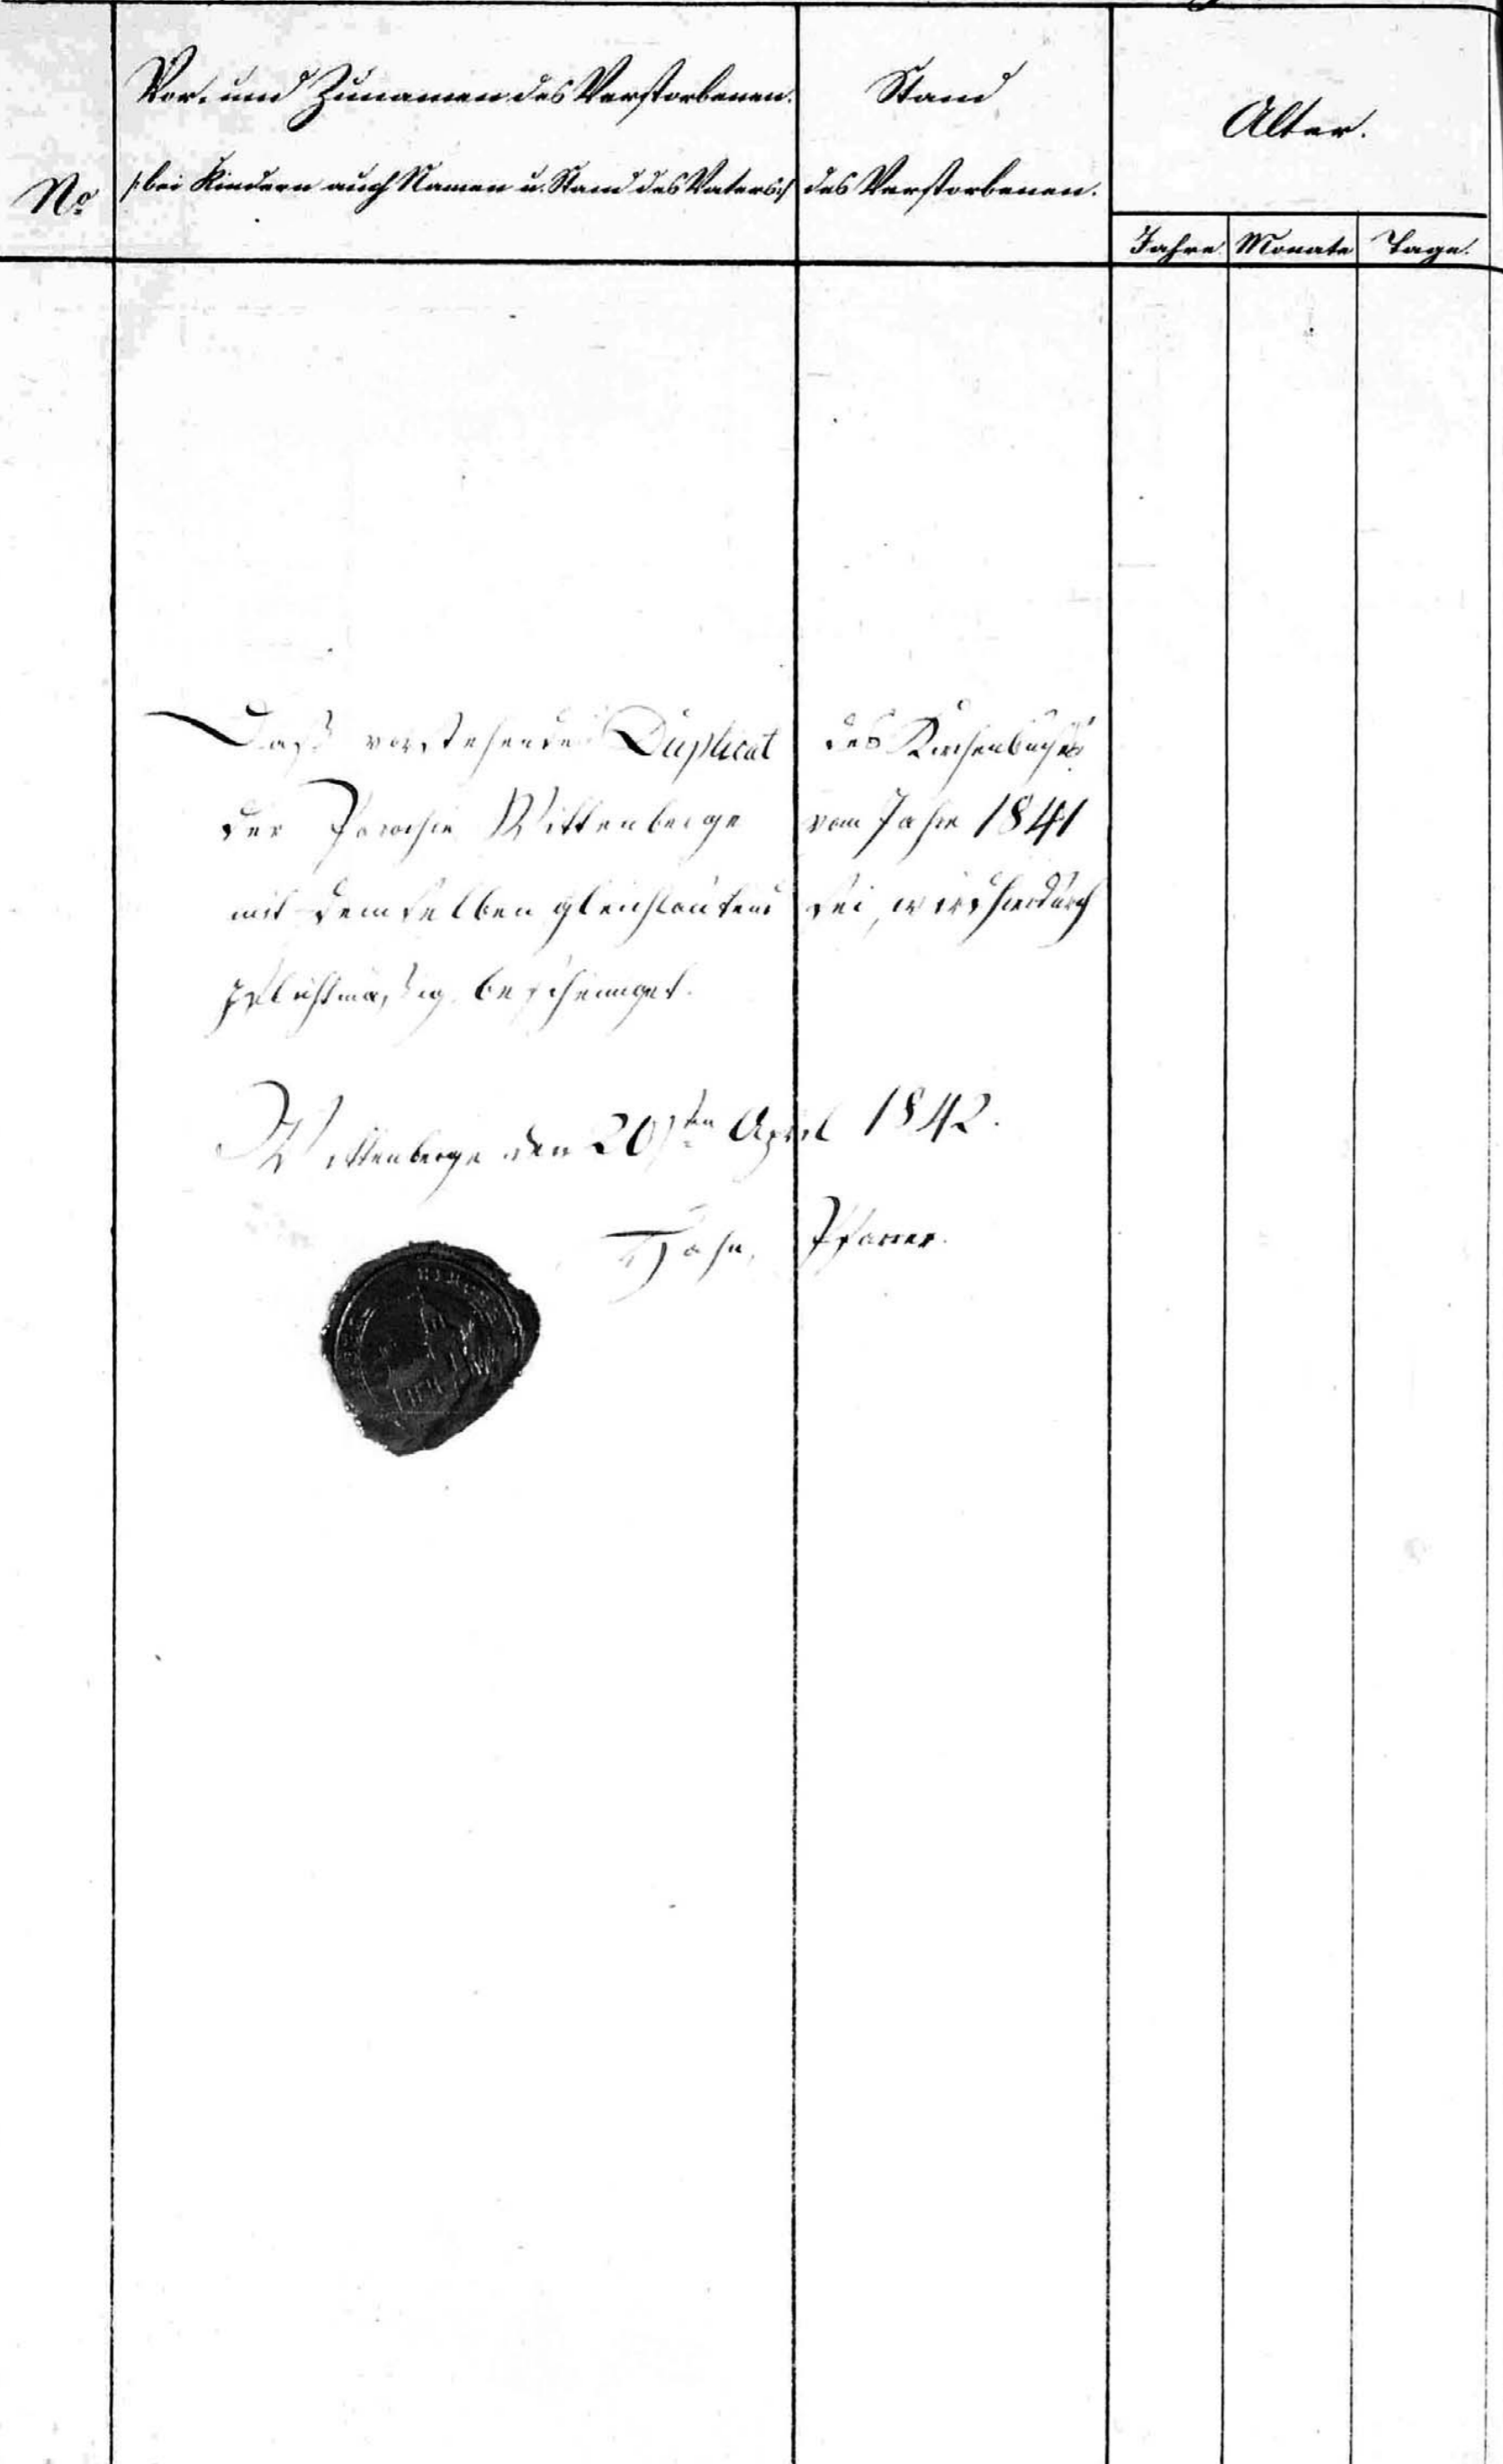 Vor- und Zunamen des Verstorbenen.
Stand
Alter.
No
/: bei Kindern auch Namen u. Stand des Vaters :/
des Verstorbenen.
Jahre. Monate Tage.
Daß vorstehendes Duplicat des Kirchenbuches
der Parochie Wittenberge vom Jahre 1841
mit demselben gleichlautend sei, wird hierdurch
pflichtmäßig bescheiniget.
Wittenberge den 20sten April 1842.
Hahn, Pfarrer.